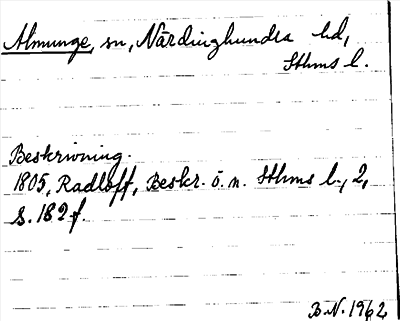 Almunge, sn, Närdinghundra hd,
Sthms l.
Beskrivning.
1805, Radloff, Beskr. ö. n. Sthms l., 2,
s. 182 f.
B.N. 1962